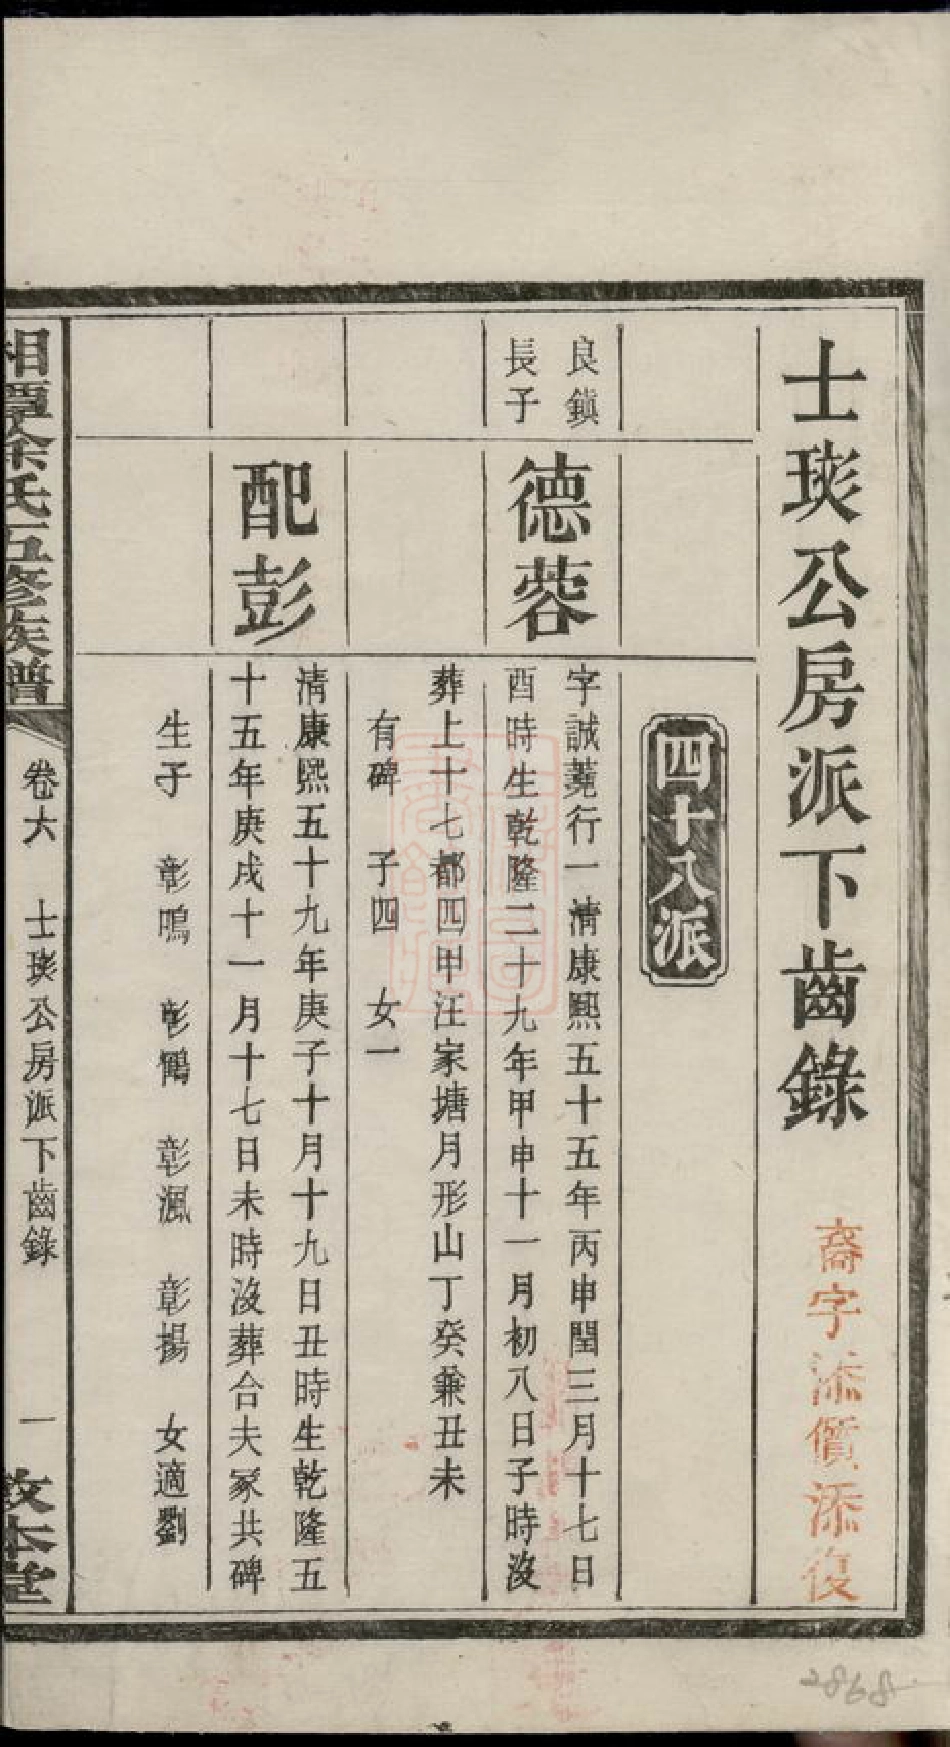 士琰公房派下齒錄
裔字添價添復
四十八派
良鎮
長子
德蓉
字誠菀行一清康熙五十五年丙申閏三月十七日
酉時生乾隆二十九年甲申十一月初八日子時沒
葬上十七都四甲汪家塘月形山丁癸兼丑未
有碑 子四 女一
配彭
清康熙五十九年庚子十月十九日丑時生乾隆五
十五年庚戌十一月十七日未時沒葬合夫冢共碑
生子 彰鳴 彰鶴 彰渢 彰揚 女適劉
湘潭徐氏五修族譜
卷六 士琰公房派下齒錄
一
敦本堂
2868